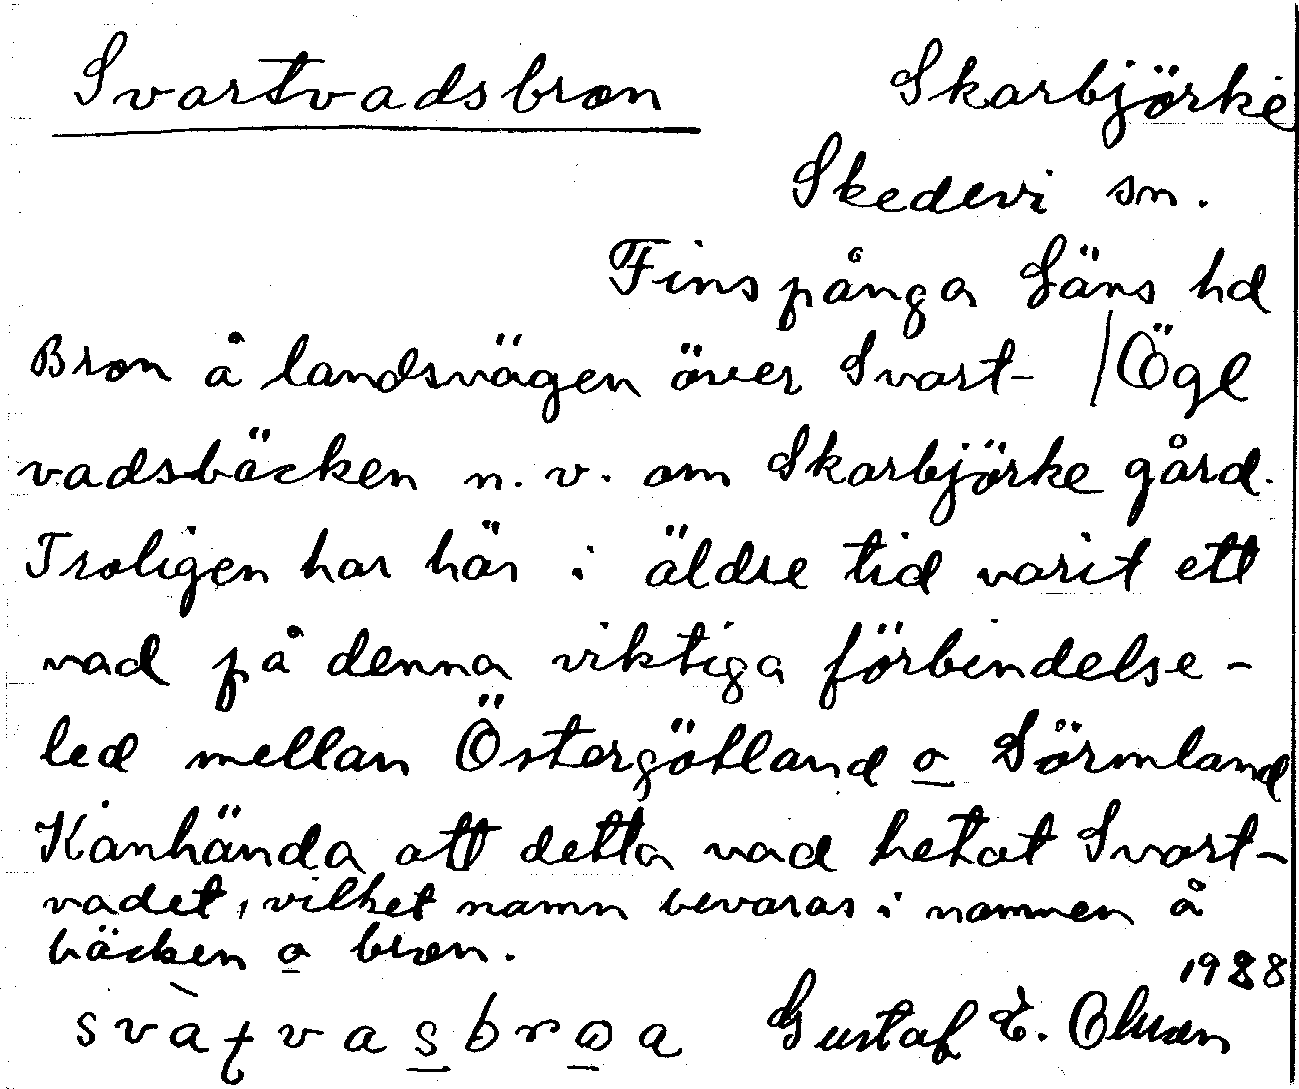 Svartvadsbron Skarbjörke
Skedevi sn.
Finspånga Läns hd
Bron å landsvägen över Svart- /Ögl
vadsbäcken n. v. om Skarbjörke gård.
Troligen har här i äldre tid varit ett
vad på denna viktiga förbindelse-
led mellan Östergötland o Sörmland
Kanhända att detta vad hetat Svart-
vadet, vilket namn bevaras i namnen å
bäcken o bron.
1928
Gustaf E. Olsson